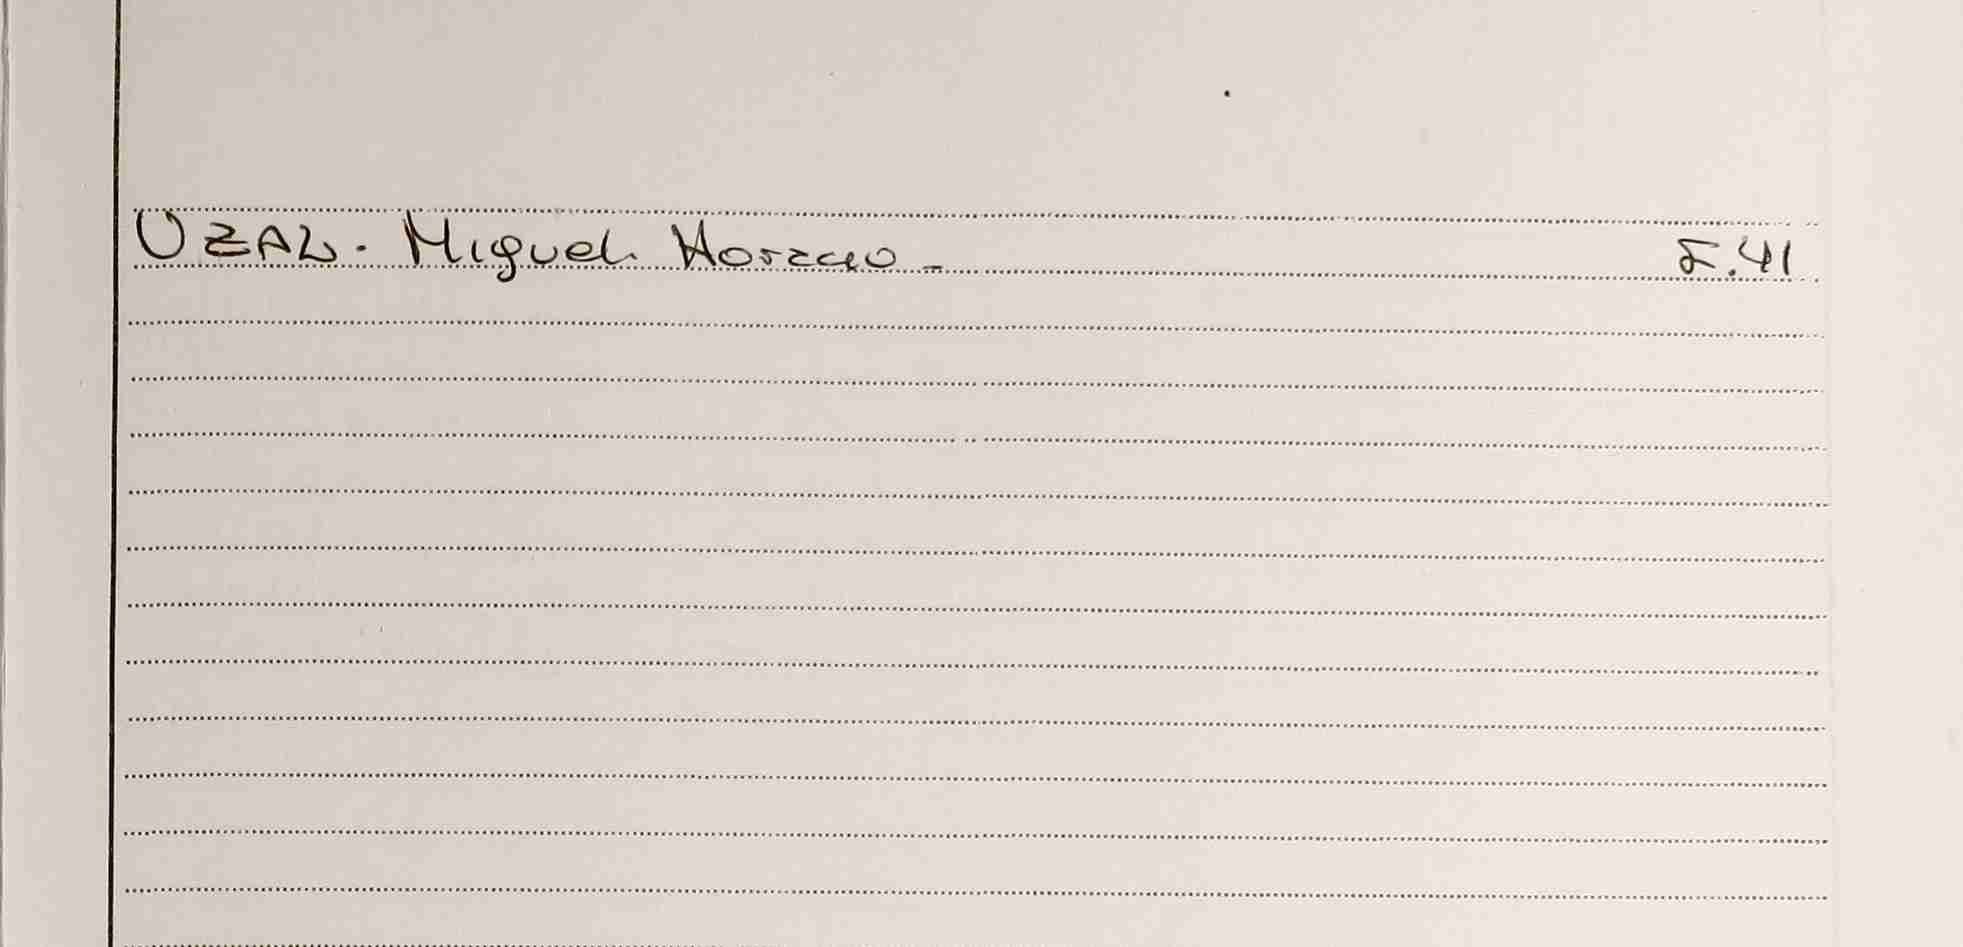 UZAL. Miguel. Horacio_ F.41